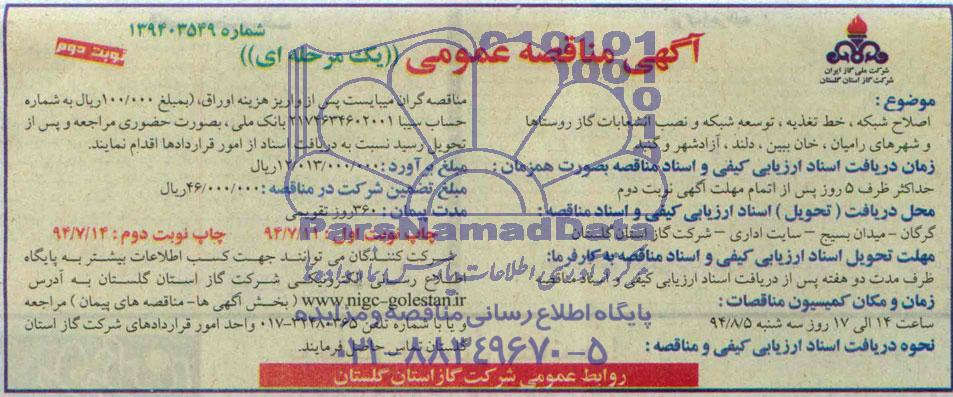 شماره ۱۳۹۴۰۳۵۴۹
نوبت دوم
آگهی مناقصه عمومی ((یک مرحله ای))
شرکت ملی گاز ایران
شرکت گاز استان گلستان
موضوع :
اصلاح شبکه ، خط تغذیه ، توسعه شبکه و نصب انشعابات گاز روستاها
و شهرهای رامیان ، خان ببین ، دلند ، آزادشهر و گنبد
زمان دریافت اسناد ارزیابی کیفی و اسناد مناقصه بصورت همزمان :
حداکثر ظرف ۵ روز پس از اتمام مهلت آگهی نوبت دوم
محل دریافت ( تحویل ) اسناد ارزیابی کیفی و اسناد مناقصه :
گرگان – میدان بسیج – سایت اداری – شرکت گاز استان گلستان
مهلت تحویل اسناد ارزیابی کیفی و اسناد مناقصه به کارفرما:
ظرف مدت دو هفته پس از دریافت اسناد ارزیابی کیفی و اسناد مناقصه
زمان و مکان کمیسیون مناقصات :
ساعت ۱۴ الی ۱۷ روز سه شنبه ۹۴/۸/۵
نحوه دریافت اسناد ارزیابی کیفی و مناقصه :
مناقصه گران میبایست پس از واریز هزینه اوراق، (بمبلغ ۱۰۰/۰۰۰ریال به شماره
حساب سیبا ۲۱۷۴۶۳۴۶۰۲۰۰۱ بانک ملی ، بصورت حضوری مراجعه و پس از
تحویل رسید نسبت به دریافت اسناد از امور قراردادها اقدام نمایند.
مبلغ برآورد : ۱۲/۰۱۳/۰۰۰/۰۰۰ریال
مبلغ تضمین شرکت در مناقصه : ۴۶/۰۰۰/۰۰۰ریال
مدت پیمان : ۳۶۰روز تقویمی
چاپ نوبت اول : ۹۴/۷/۱۱ چاپ نوبت دوم : ۹۴/۷/۱۴
شرکت کنندگان می توانند جهت کسب اطلاعات بیشتر به پایگاه
اطلاع رسانی الکترونیکی شرکت گاز استان گلستان به آدرس
www.nigc-golestan.ir ( بخش آگهی ها- مناقصه های پیمان ) مراجعه
و یا با شماره تلفن ۳۲۴۸۰۳۶۵-۰۱۷ واحد امور قراردادهای شرکت گاز استان
گلستان تماس حاصل فرمایند.
روابط عمومی شرکت گاز استان گلستان
پایگاه اطلاع رسانی مناقصه و مزایده
۰۲۱-۸۸۳۴۹۶۷۰-۵